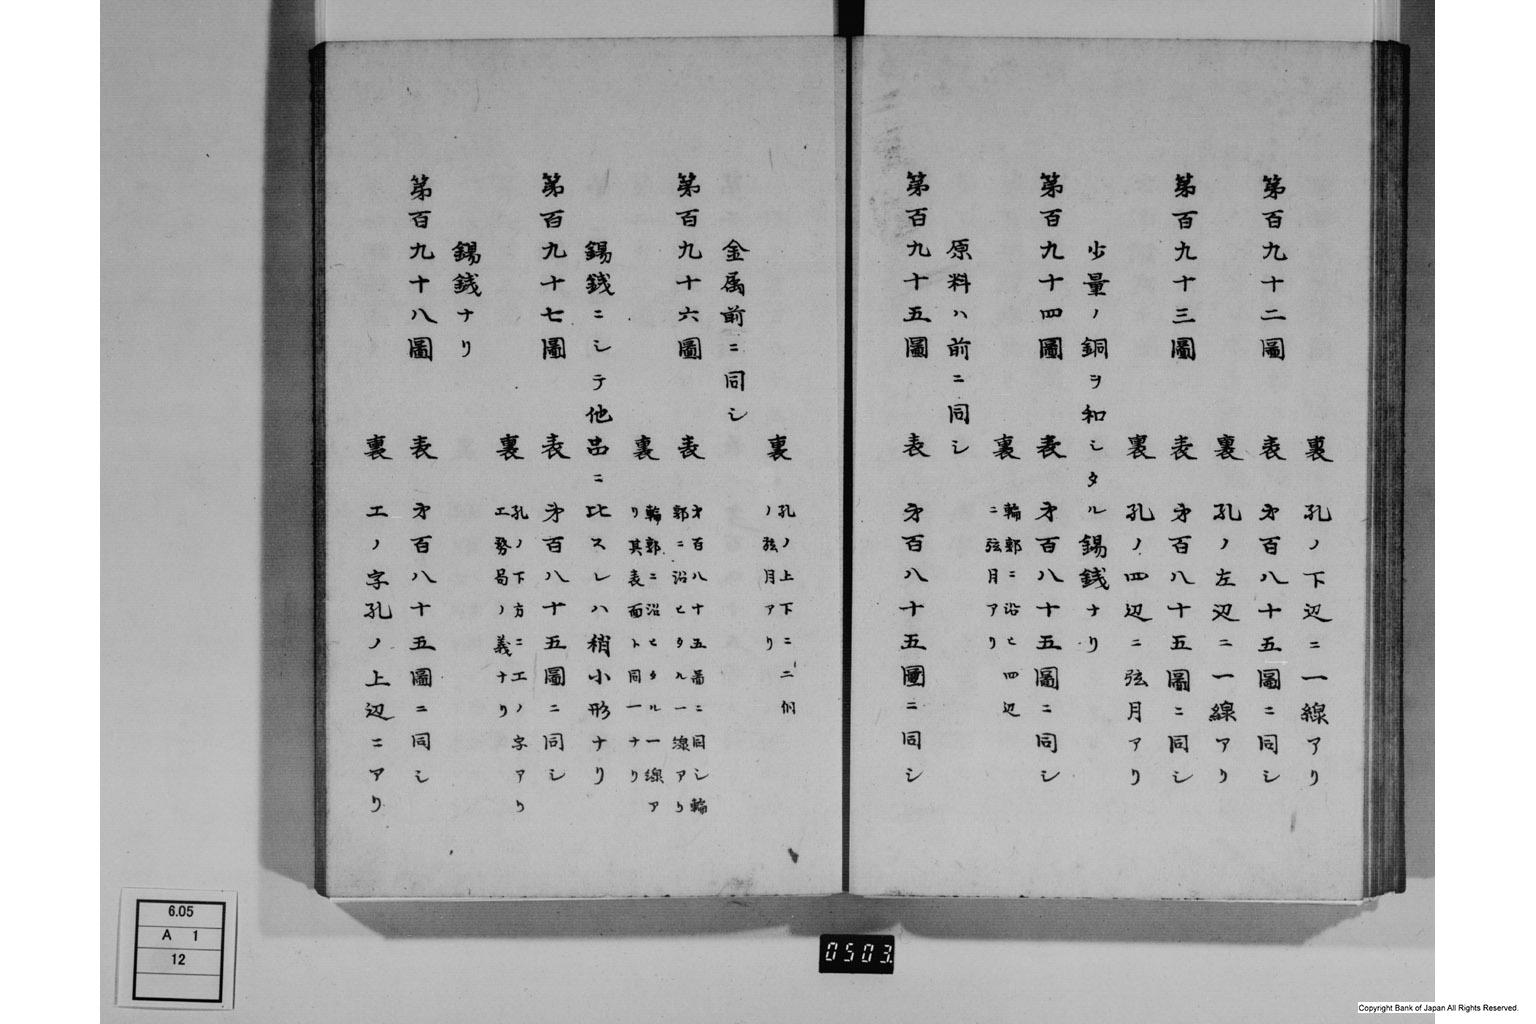 裏 孔ノ下辺ニ一線アリ
第百九十二圖 表 㐧百八十五圖ニ同シ
裏 孔ノ左辺ニ一線アリ
第百九十三圖 表 㐧百八十五圖ニ同シ
裏 孔ノ四辺ニ弦月アリ
少量ノ銅ヲ和シタル錫銭ナリ
第百九十四圖 表 㐧百八十五圖ニ同シ
裏 輪郭ニ沿ヒ四辺
ニ弦月アリ
原料ハ前ニ同シ
第百九十五圖 表 㐧百八十五圖ニ同シ
裏 孔ノ上下ニ二個
ノ弦月アリ
金属前ニ同シ
第百九十六圖 表 㐧百八十五圖ニ同シ輪
郭ニ沿ヒタル一線アリ
裏 輪郭ニ沿ヒタル一線ア
リ其表面ト同一ナリ
錫銭ニシテ他品ニ比スレハ稍小形ナリ
第百九十七圖 表 㐧百八十五圖ニ同シ
裏 孔ノ下方ニエノ字アリ
工務局ノ義ナリ
錫銭ナリ
第百九十八圖 表 㐧百八十五圖ニ同シ
裏 エノ字孔ノ上辺ニアリ
6.05
A 1
12
0503
Copyright Bank of Japan All Rights Reserved.